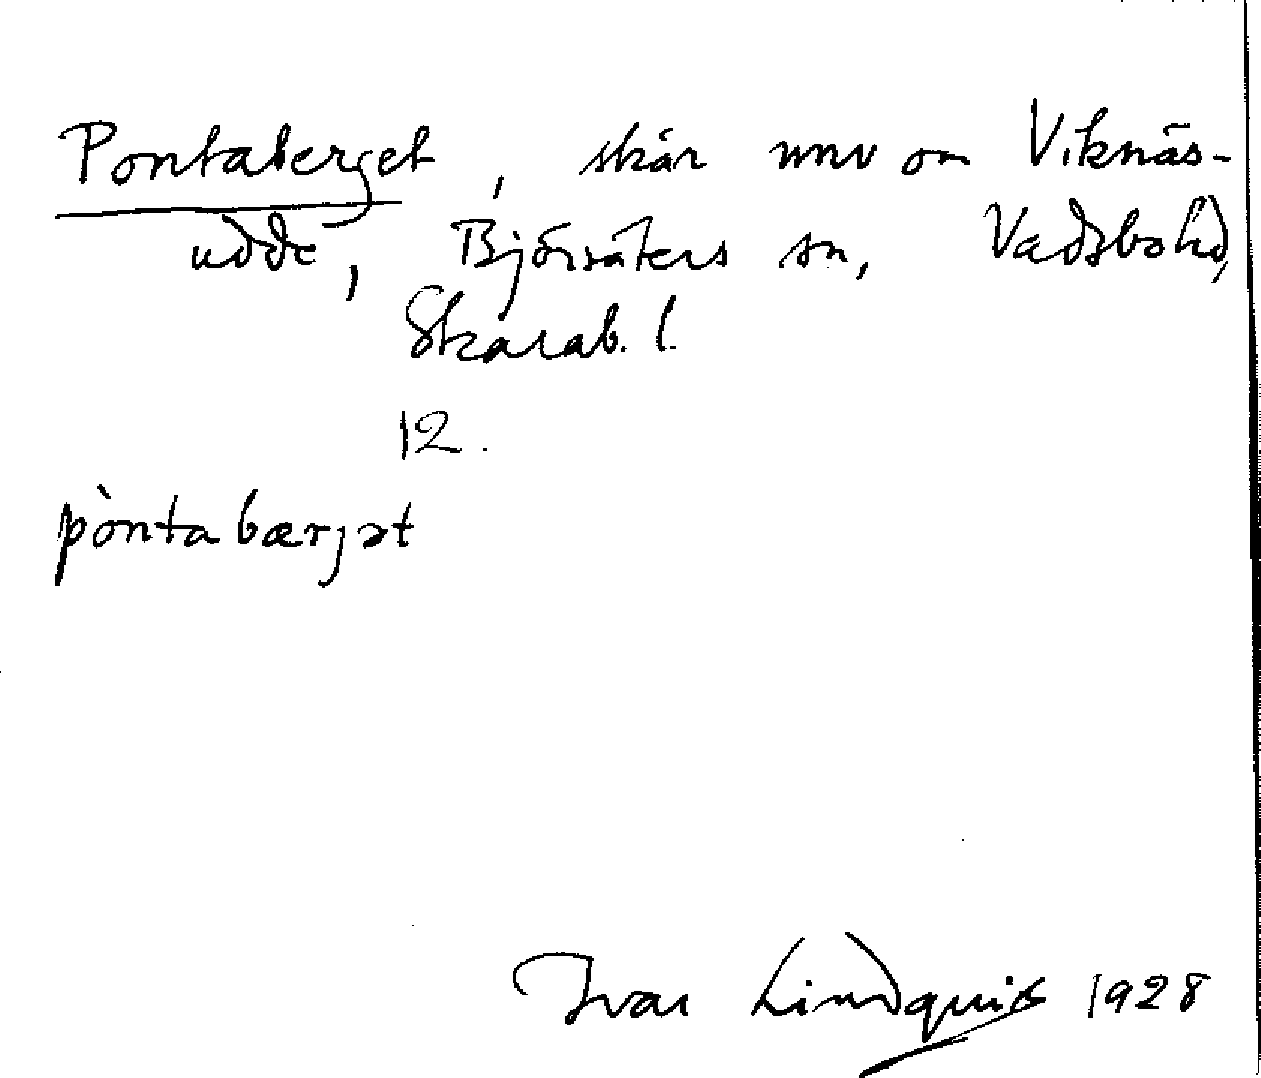 Pontaberget, skär nnv om Viknäs-
udde, Björsäters sn, Vadsbo hd,
Skarab. l.
12.
pòntabærjət
Ivar Lindquist 1928